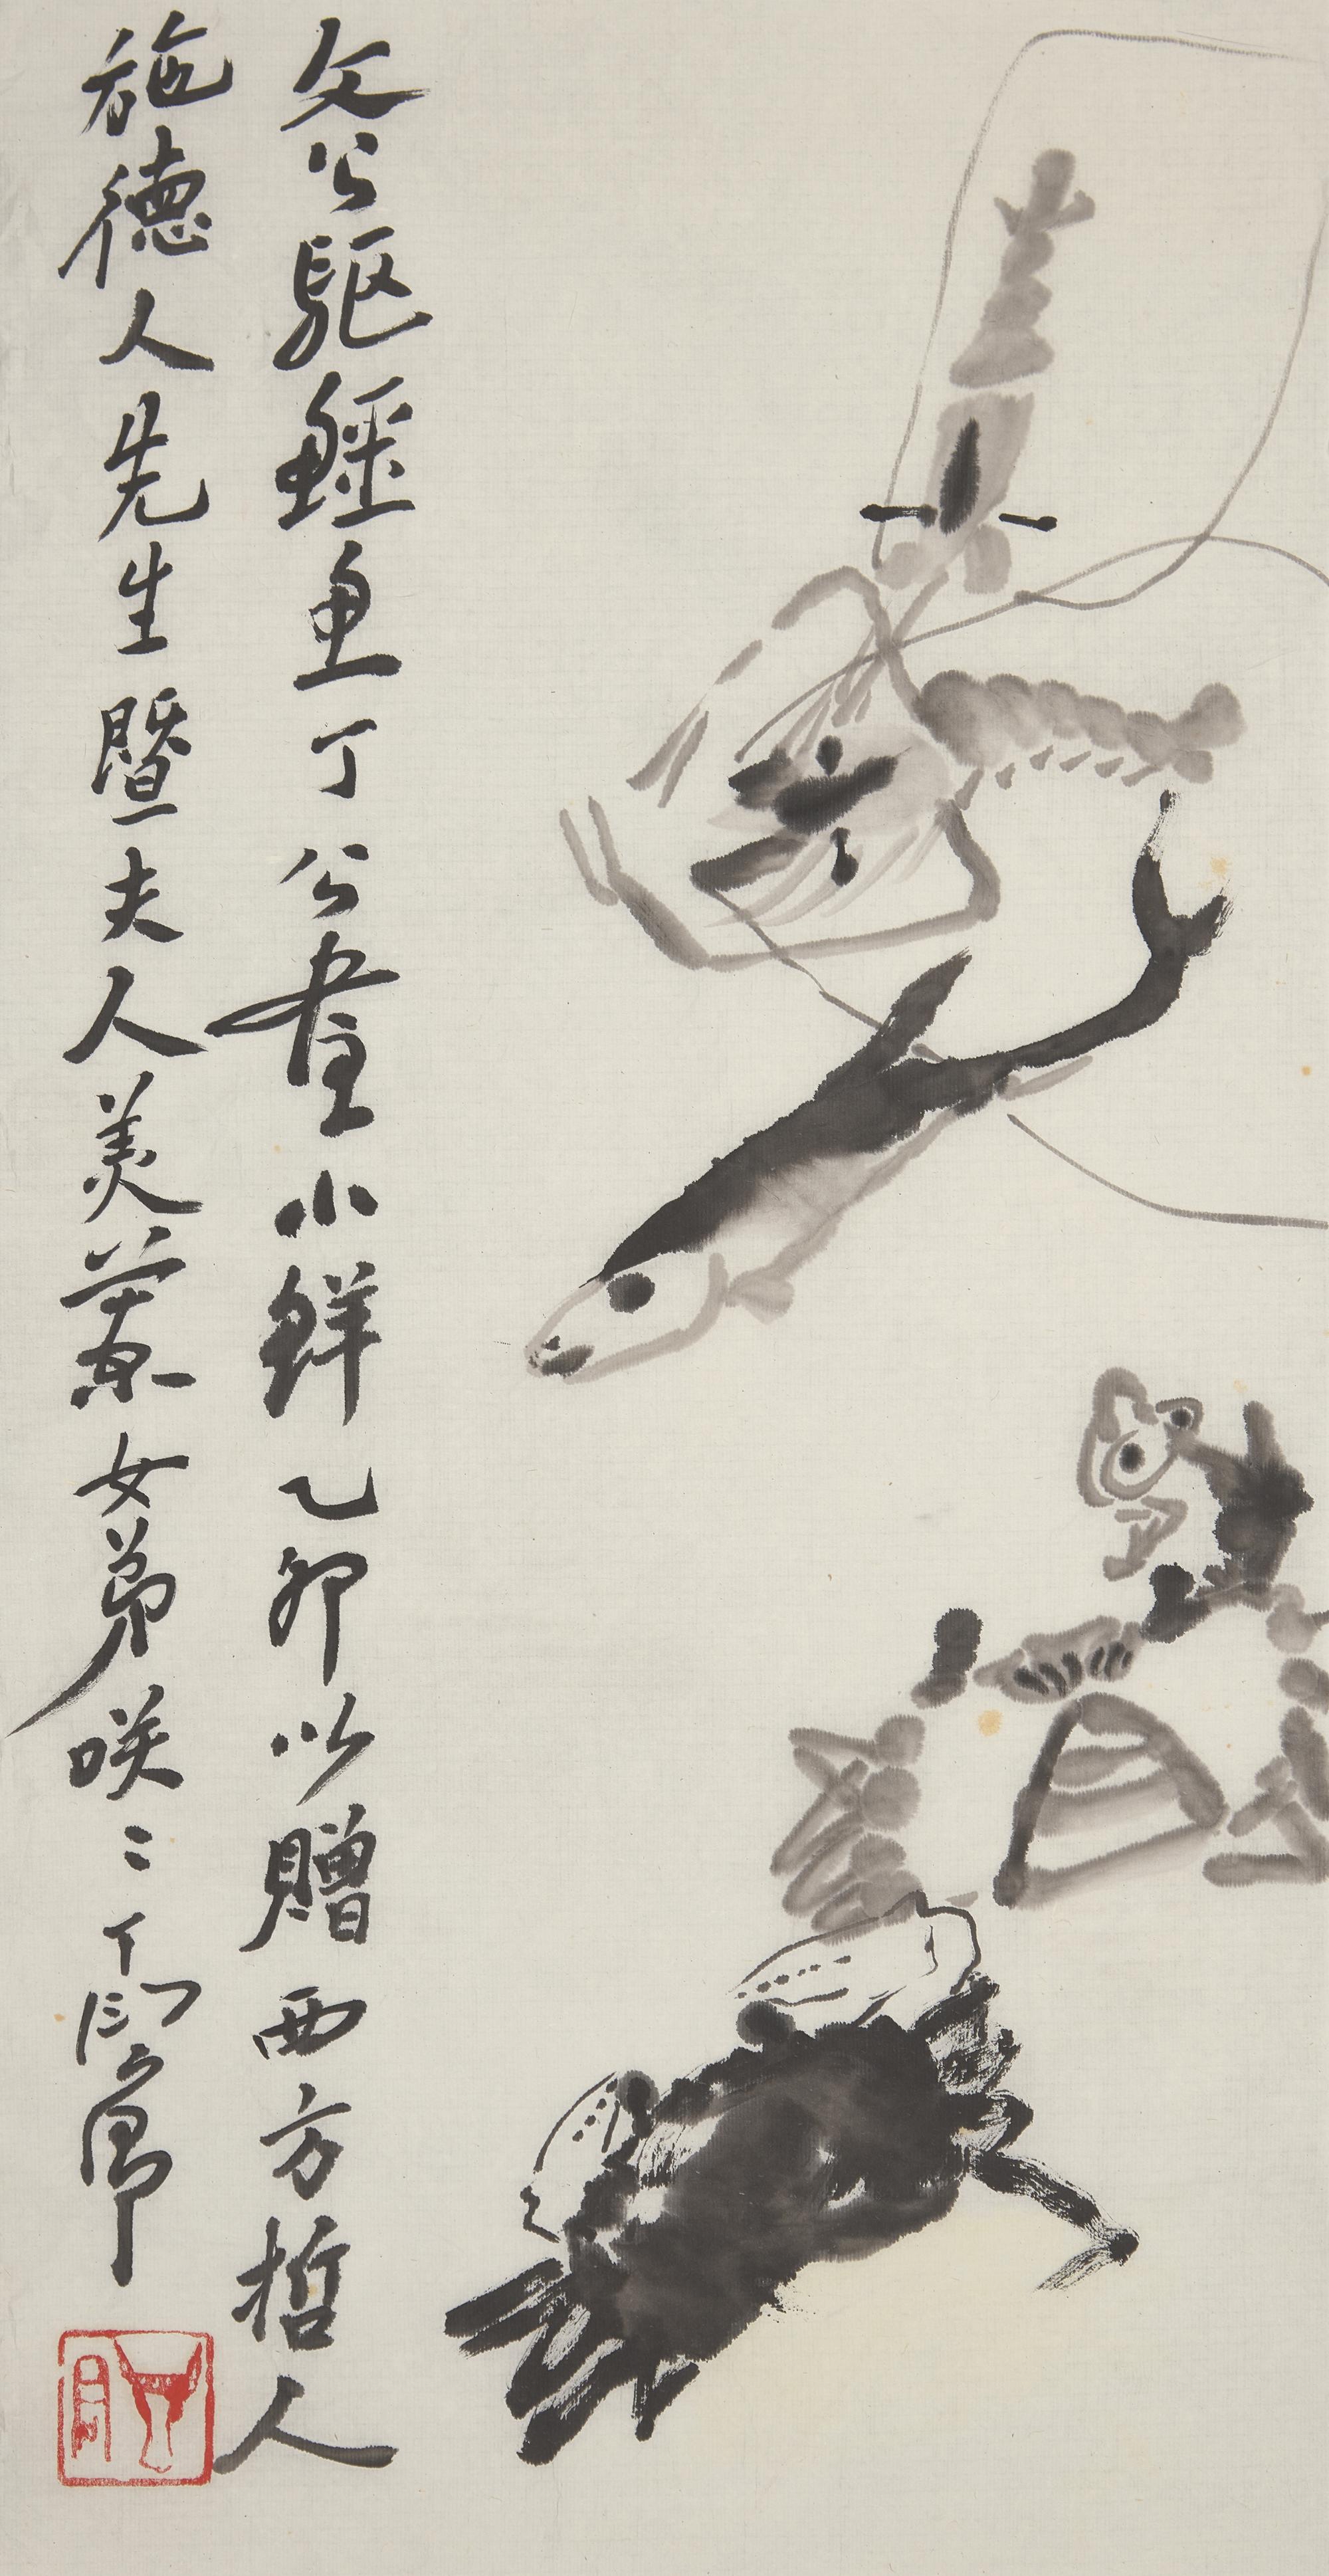 文公驅鱷魚丁公畫小鮮乙卯以贈西方哲人
施德人先生暨夫人美女弟咲々丁衍庸